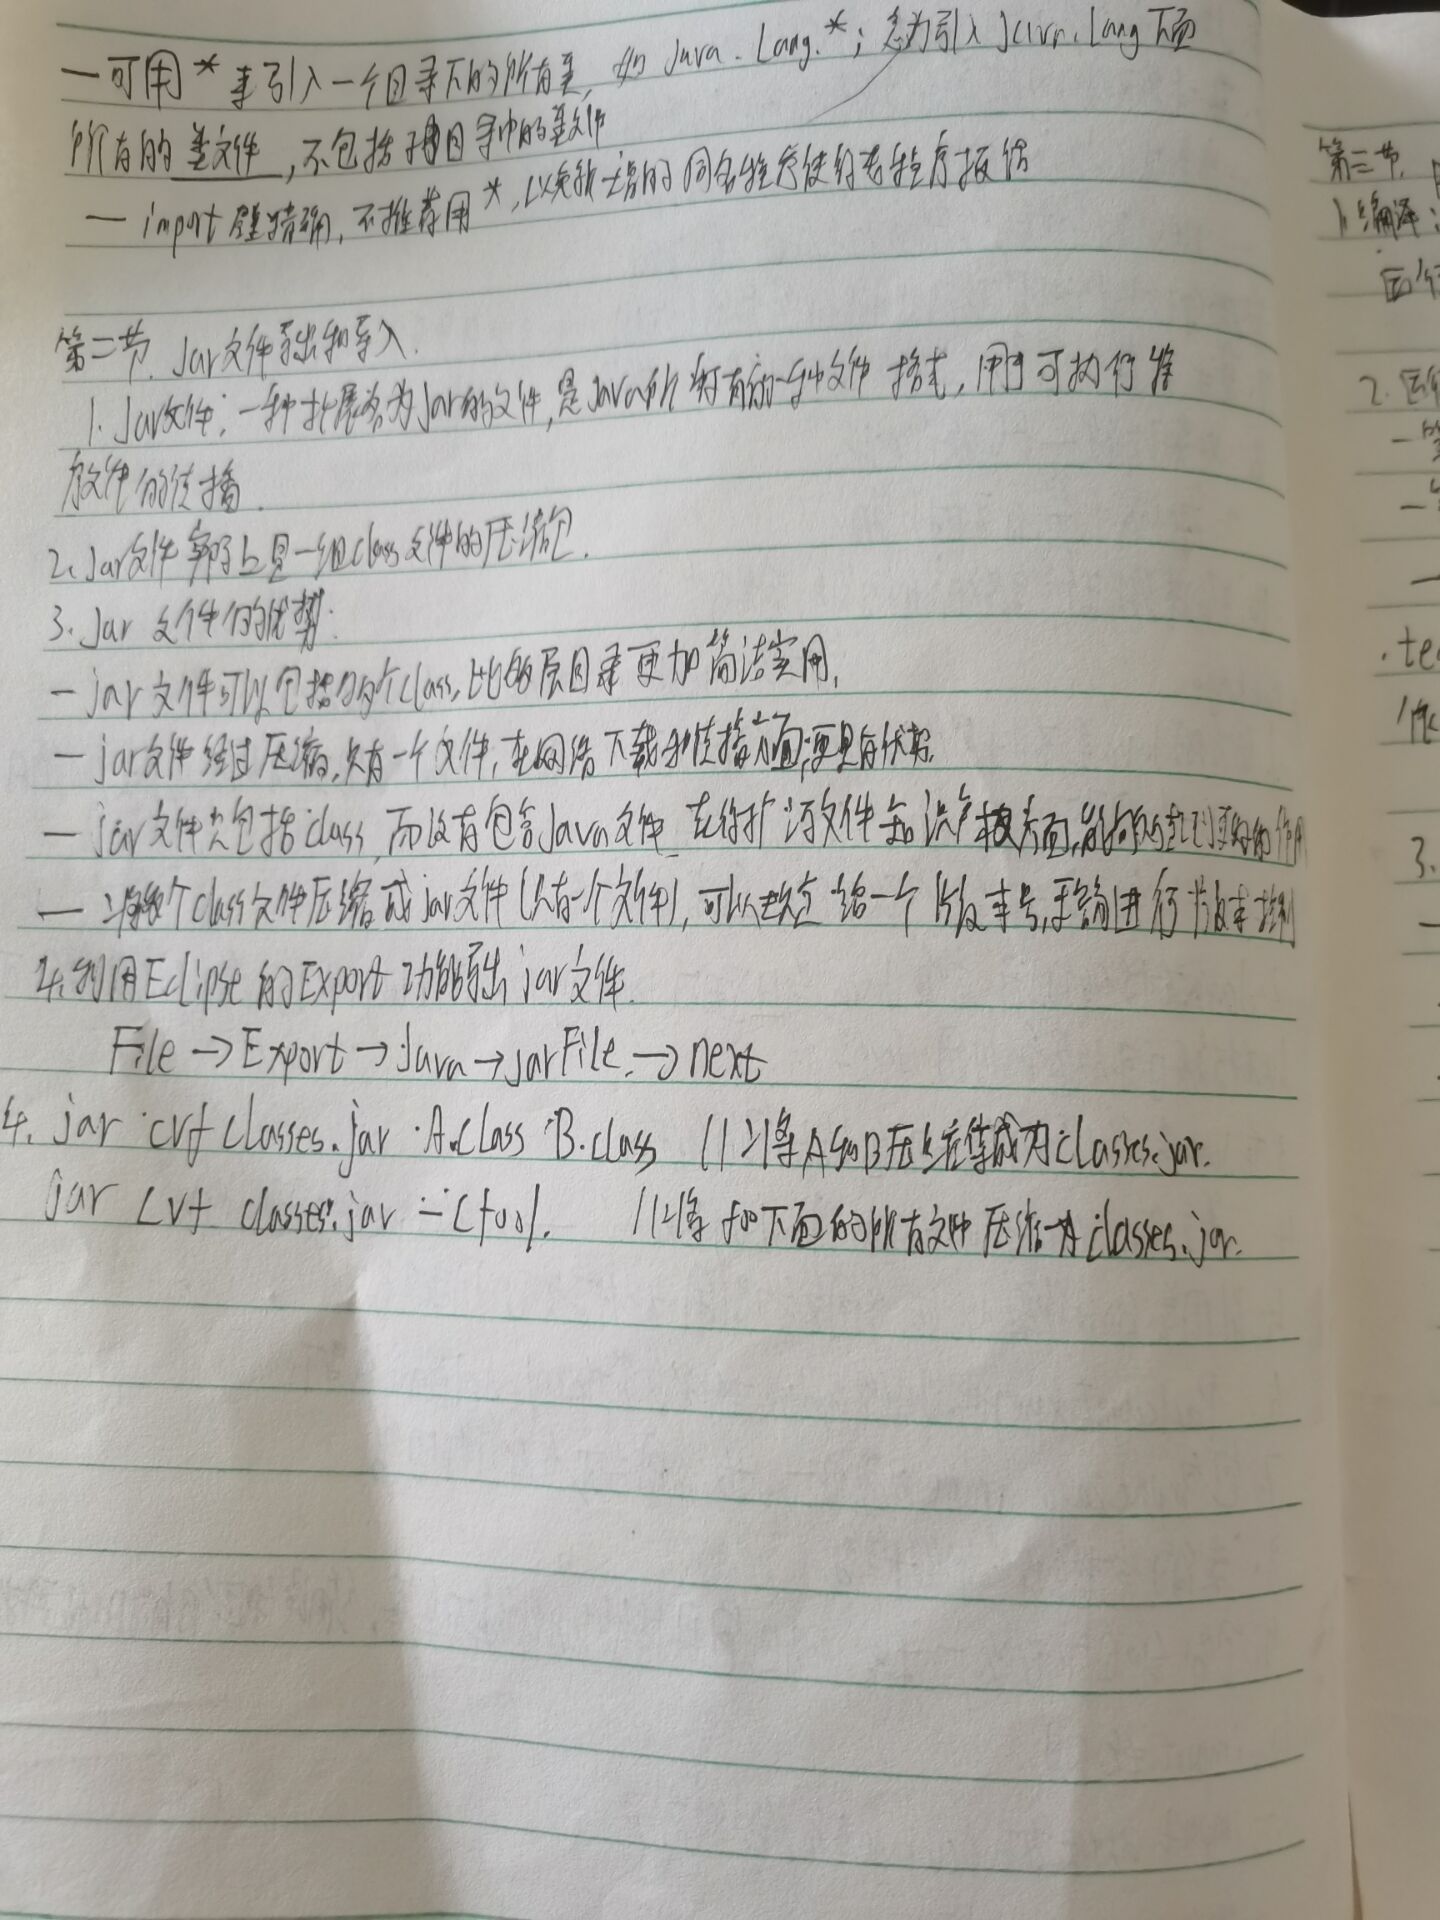 一可用*来引入一个目录下的所有类,如 java.lang.*;意为引入java.lang下面
所有的类文件,不包括子目录中的类文件
一 import尽量精确,不推荐用*,以免新增的同名程序使得老程序报错
第二节.Jar文件导出和导入.
1.Jar文件:一种扩展名为jar的文件,是Java所特有的一种文件格式,用于可执行程
序文件的传播.
2.Jar文件实际上是一组class文件的压缩包.
3.Jar 文件的优势:
一 jar文件可以包括多个class,比多层目录更加简洁实用.
一 jar文件经过压缩,只有一个文件,在网络下载和传播方面,更具有优势.
一 jar文件只包括class,而没有包含Java文件,在保护源文件知识产权方面,能够起到更好的作用
一 将多个class文件压缩成jar文件(只有一个文件),可以规定给一个版本号,更容易进行版本控制
4.利用Eclipse的Export功能导出jar文件.
File→Export→Java→jarFile.→next
4. jar cvf classes.jar A.class B.class //将A和B压缩成为classes.jar.
jar cvf classes.jar -C foo/. //将foo下面的所有文件压缩为classes.jar.
第三节.
1.编译:
2.
3.